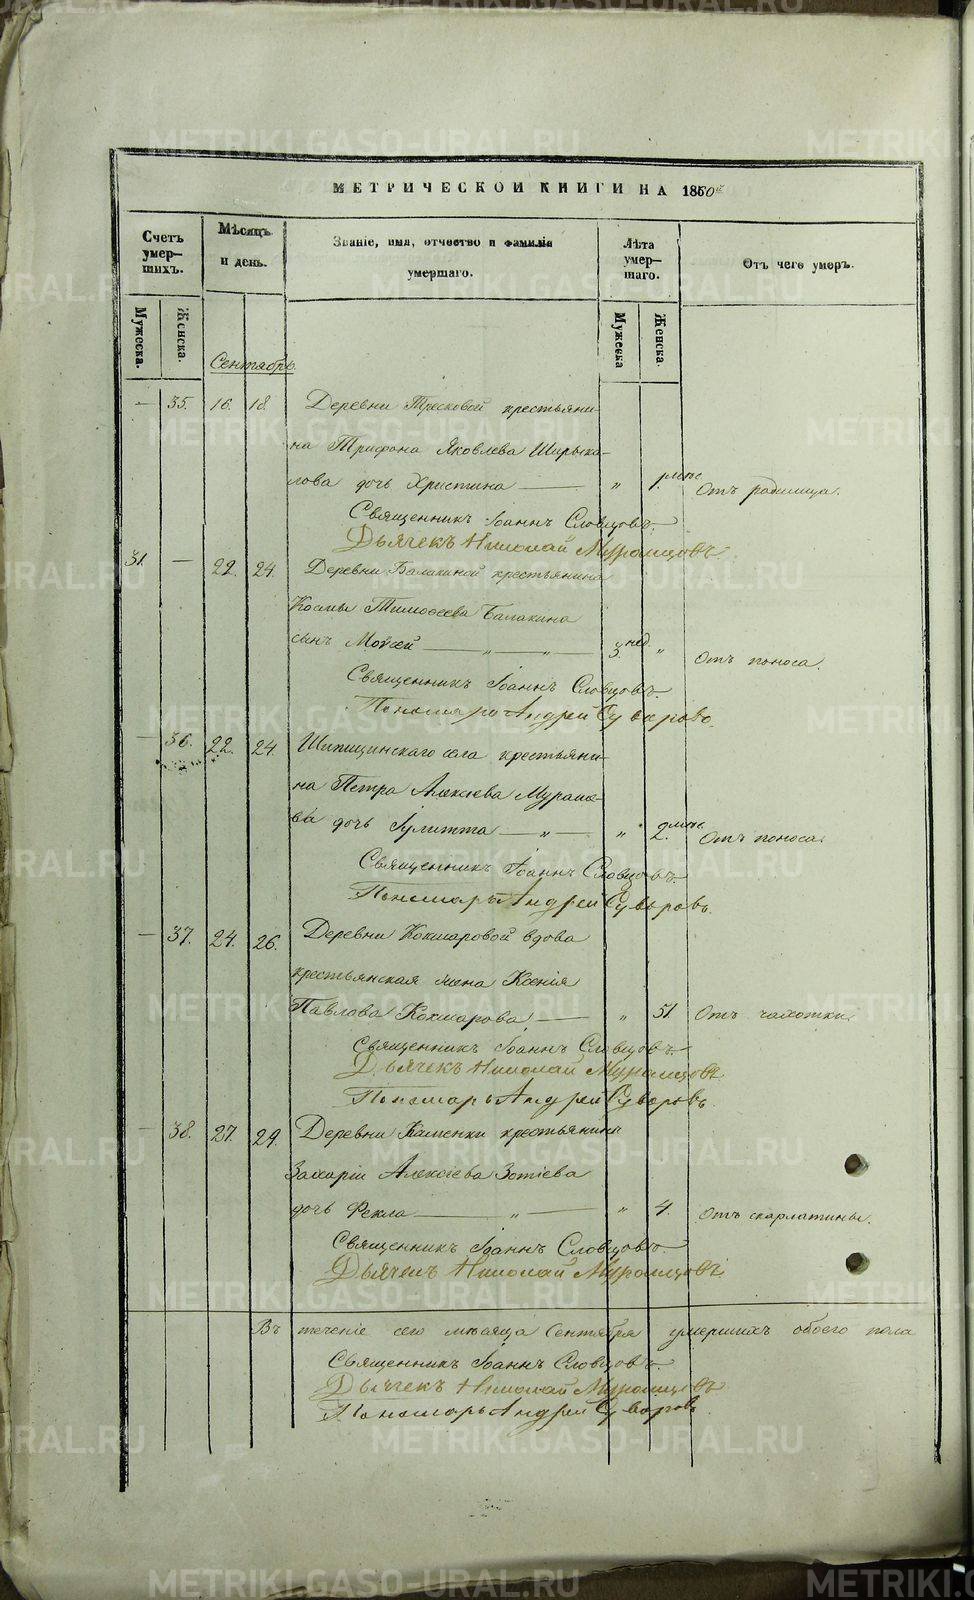 METRIKI.GASO-URAL.RU
МЕТРИЧЕСКОЙ КНИГИ НА 1860й
Счетъ умер-шихъ.
Мѣсяцъ и день.
Званіе, имя, отчество и фамилія умершаго.
Лѣта умер-шаго.
Отъ чего умеръ.
Мужеска.
Женска.
Мужеска
Женска.
Сентябрь.
— 35. 16. 18. Деревни Тресковой крестьяни-
на Трифона Яковлева Ширыка-
лова дочь Христина — „ 1. мѣс. Отъ родимца.
Священникъ Іоаннъ Словцовъ.
Дьячекъ Николай Муромцовъ
31. — 22. 24. Деревни Балакиной крестьянина
Космы Тимоѳеева Балакина
сынъ Мойсей — „ — „ — 3. нед. „ Отъ поноса.
Священникъ Іоаннъ Словцовъ.
Пономарь Андрей Суворовъ
— 36. 22. 24. Шипицинскаго села крестьяни-
на Петра Алексѣева Мураше-
ва дочь Іулитта — „ — „ 2. мѣс. Отъ поноса.
Священникъ Іоаннъ Словцовъ.
Пономарь Андрей Суворовъ.
— 37. 24. 26. Деревни Кокшаровой вдова
крестьянская жена Ксенія
Павлова Кокшарова — „ 51. Отъ чахотки.
Священникъ Іоаннъ Словцовъ
Дьячекъ Николай Муромцовъ
Пономарь Андрей Суворовъ
— 38. 27. 29. Деревни Каменки крестьянина
Захарія Алексѣева Зотѣева
дочь Фекла — „ — „ 4. Отъ скарлатины.
Священникъ Іоаннъ Словцовъ.
Дьячекъ Николай Муромцовъ
Въ теченіе сего мѣсяца Сентября умершихъ обоего пола
Священникъ Іоаннъ Словцовъ.
Дьячекъ Николай Муромцовъ
Пономарь Андрей Суворовъ